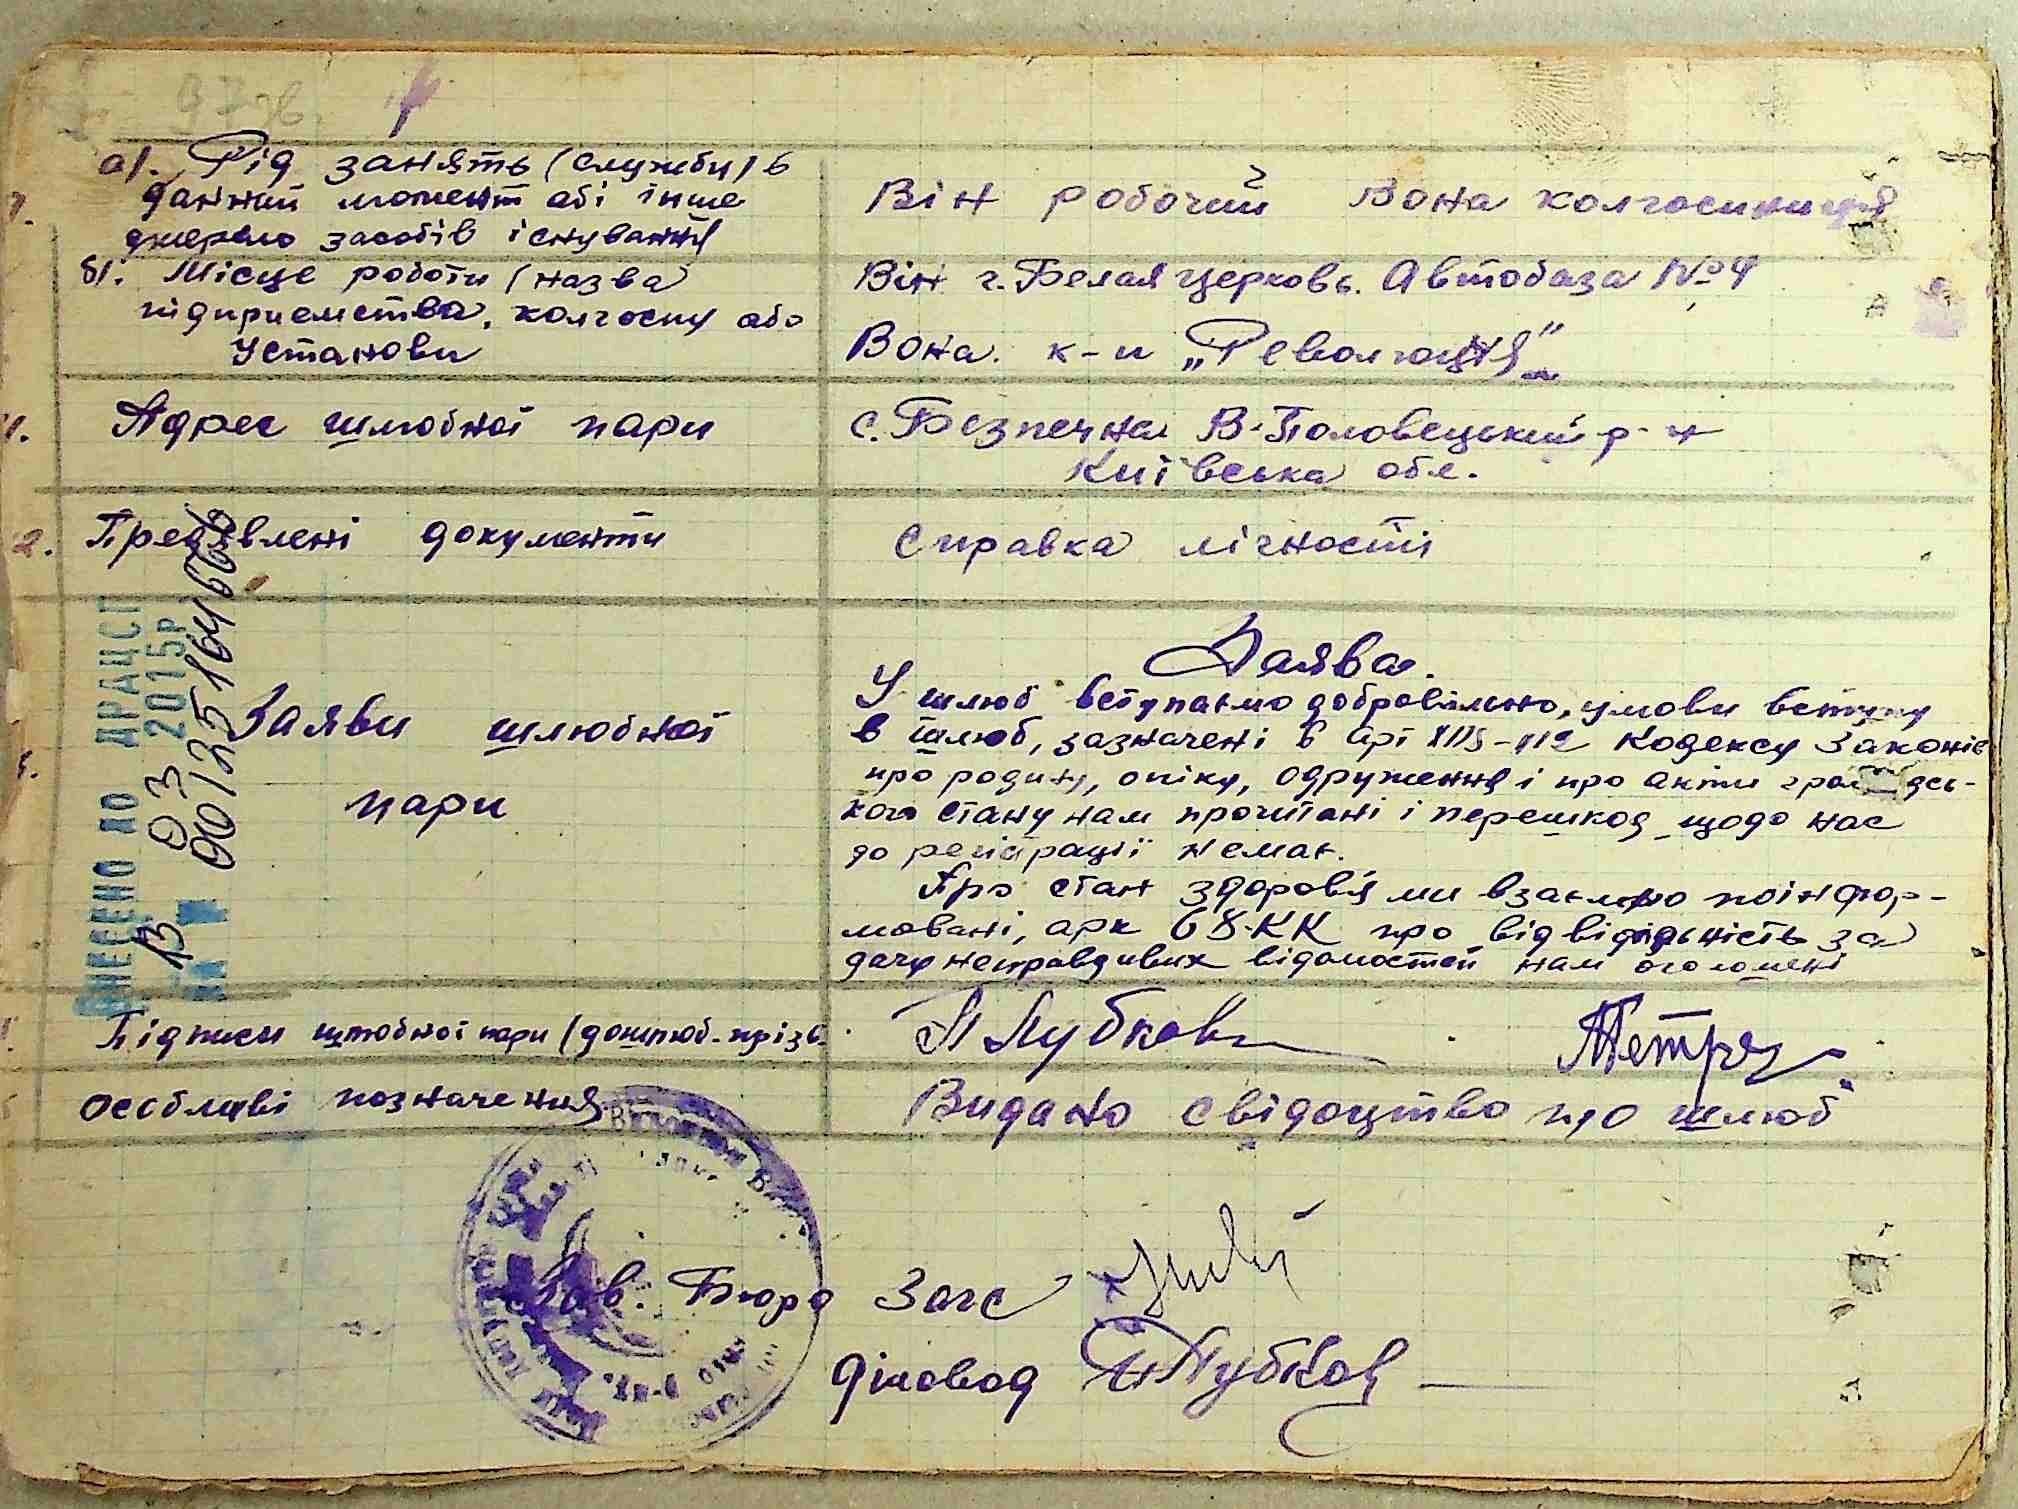 97 зв.
а/. Рід занять (служби) в
данний момент або інше
джерело засобів існування
Він робочий Вона колгоспниця
б/. Місце роботи (назва
підприємства, колгоспу або
Установи
Він г. Белая Церковь. Автобаза №4
Вона. к-п „Революція"
Адрес шлюбної пари
с. Безпечна В-Половецький р-н
Київська обл.
2. Предявлені документи
Справка лічності
Заяви шлюбної
пари
Заява.
У шлюб вступаємо добровільно, умови вступу
в шлюб, зазначені в арт 105-112 Кодексу Законів
про родину, опіку, одруження і про акти громадсь-
кого стану нам прочитані і перешкод щодо нас
до регістрації немає.
Про стан здоров'я ми взаємно поінфор-
мовані, арк 68 КК про відвідальність за
дачу неправдивих відомостей нам оголошені
Підписи шлюбної пари (дошлюб. прізв.
Лубков
Петр
Особливі позначення
Видано свідоцтво про шлюб
Зав. Бюро Загс
діловод Лубков
ВНЕСЕНО ДО ДРАЦСГ
13 03 2015р
00125164666